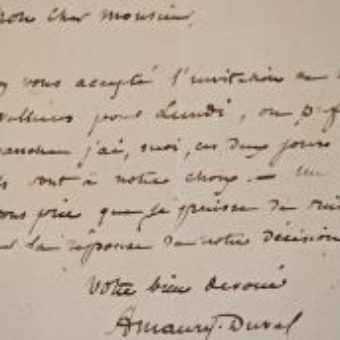 mon cher monsieur,
vous accepté l'invitation
pour Lundi, ou
j'ai, moi, ces deux jours
sont à notre choix. — Un
vous prie que je puisse
la réponse de notre décision
Votre bien devoué
Amaury-Duval